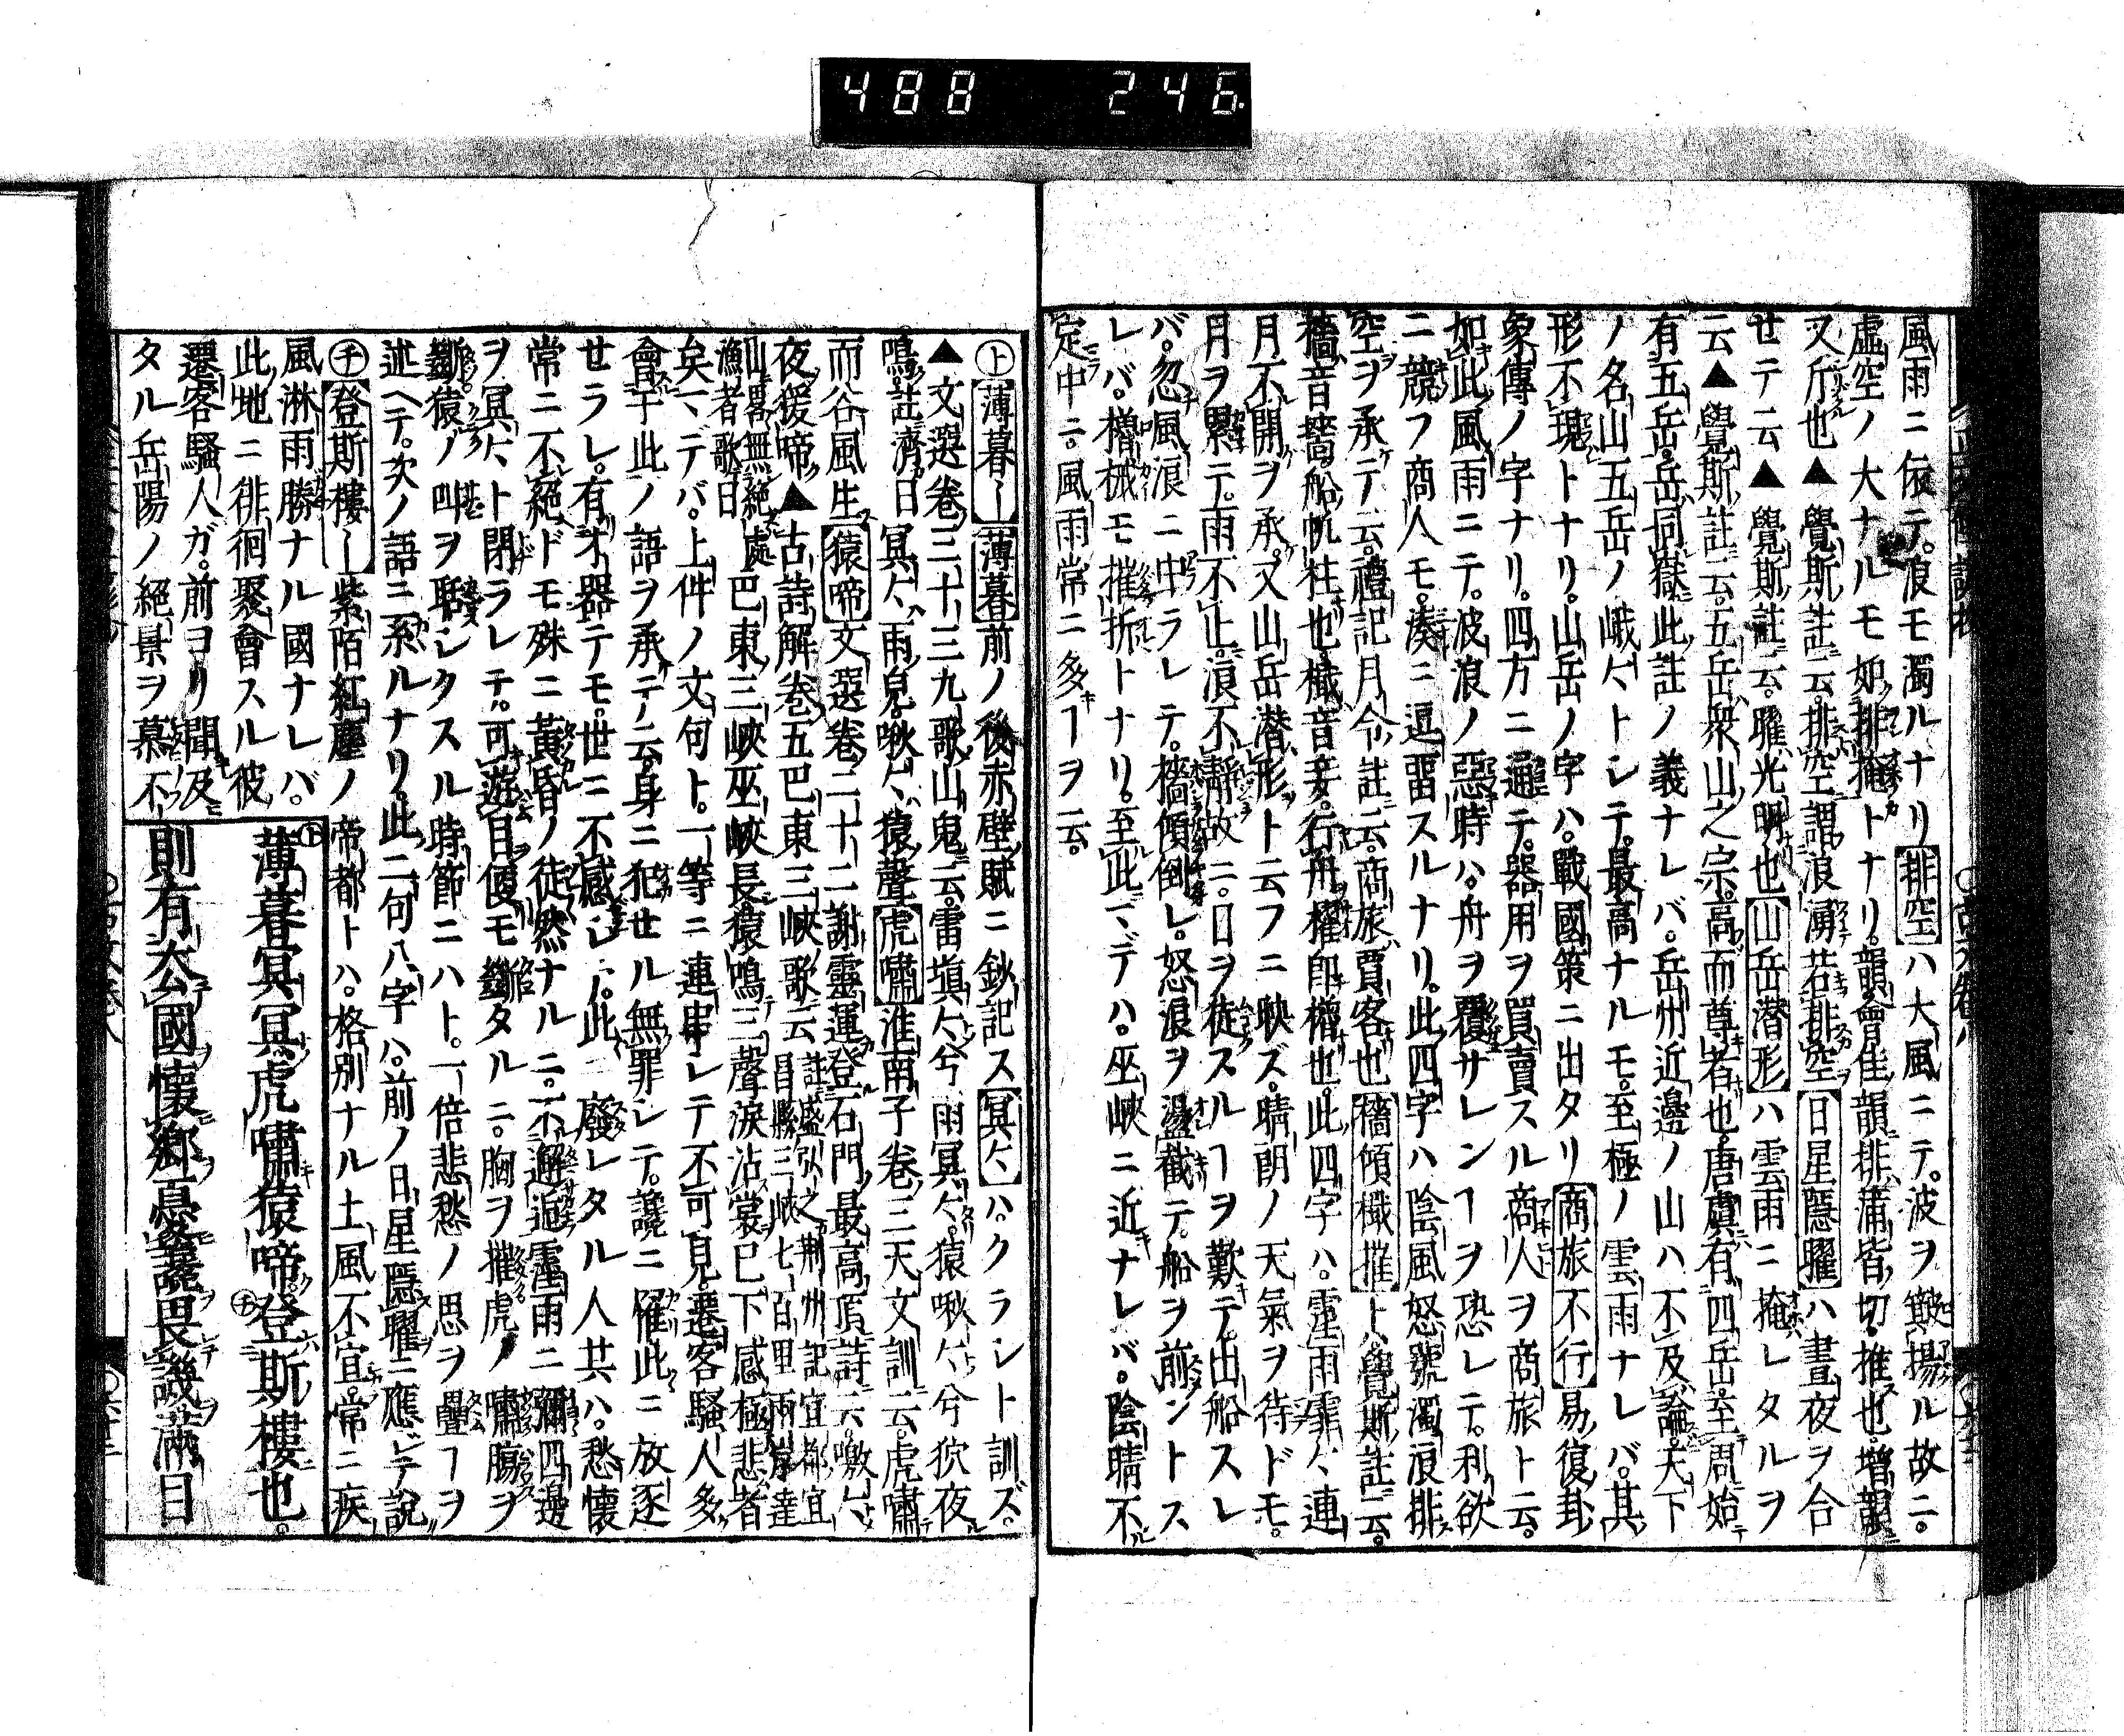 488 246
風雨ニ依テ。浪モ濁ルナリ排空ハ大風ニテ。波ヲ簸揚ル故ニ。
虚空ノ大ナルモ如排掩トナリ。韻會佳韻排蒲皆切。推也。増韻
又斥也▲覺斯註云。排空謂浪湧若排空日星隱曜ハ晝夜ヲ合
セテ云▲覺斯註云。曜光明也山岳潜形ハ雲雨ニ掩レタルヲ
云▲覺斯註云。五岳衆山之宗。高而尊者也。唐虞有四岳。至周始
有五岳。岳同嶽。此註ノ義ナレバ。岳州近邊ノ山ハ不及論。天下
ノ名山五岳ノ峨〻トシテ。最高ナルモ。至極ノ雲雨ナレバ。其
形不現トナリ。山岳ノ字ハ。戰國策ニ出タリ商旅不行易復卦
象傳ノ字ナリ。四方ニ通テ。器用ヲ買賣スル商人ヲ商旅ト云。
如此風雨ニテ。波浪ノ惡時ハ。舟ヲ覆サレンヿヲ恐レテ。利欲
ニ競フ商人モ。湊ニ逗畱スルナリ。此四字ハ陰風怒號濁浪排
空ヲ承テ云。禮記月令註云。商旅賈客也檣傾檝摧ト八覺斯註云。
檣音嗇。船帆柱也。檝音妾。行舟櫂卽櫓也。此四字ハ。霪雨霏〻連
月不開ヲ承。又山岳潜形ト云フニ映ズ。晴朗ノ天氣ヲ待ドモ。
月ヲ累テ。雨不止。浪不靜故ニ。日ヲ徒スルヿヲ歎テ。出船スレ
バ。忽風浪ニ中ラレテ。檣傾倒レ。怒浪ヲ盪截テ。船ヲ前ントス
レバ。櫓械モ摧折トナリ。至此〻デハ。巫峽ニ近ナレバ。陰晴不
定中ニ。風雨常ニ多ヿヲ云。
㋣薄暮〡薄暮前ノ後赤壁賦ニ鈔記ス冥〻ハ。クラシト訓ズ。
▲文選卷三十三九歌山鬼云。雷塡〻兮雨冥〻。猿啾〻兮狖夜
鳴。註濟曰冥〻雨皃。啾〻猿聲虎嘯淮南子卷三天文訓云。虎嘯
而谷風生猿啼文選卷二十二謝靈運登石門最高頂詩云。噭〻
夜猨啼▲古詩解卷五巴東三峽歌云註盛弘之荆州記宜都宜昌縣三峽七百里兩岸連
山畧無絶處漁者歌曰巴東三峽巫峽長。猿鳴三聲淚沾裳已下感極悲者
矣〻デバ。上件ノ文句ト。一等ニ連串シテ不可見。遷客騷人多
會于此ノ語ヲ承テ云。身ニ犯セル無罪シテ。讒ニ罹此ニ放逐
セラレ。有才器テモ。世ニ不感レ。此ニ廢レタル人共ハ。愁懷
常ニ不絶ドモ殊ニ黃昏ノ徒然ナルニ。不邂逅霪雨ニ彌四邊
ヲ冥〻ト閉ラレテ。可遊目便モ斷タルニ。胸ヲ摧虎ノ嘯腸ヲ
斷猿ノ叫ヲ聒シクスル時節ニハト。一倍悲愁ノ思ヲ疊ヿヲ
述ヘテ。次ノ語ニ系ルナリ。此二句八字ハ。前ノ日星隱曜ニ應ジテ說
㋠登斯樓〡紫陌紅塵ノ帝都トハ。格別ナル土風不宜。常ニ疾
風淋雨勝ナル國ナレバ。
此地ニ徘徊聚會スル彼
遷客騷人ガ。前ヨリ聞及
タル岳陽ノ絕景ヲ慕不
㋣薄暮冥冥虎嘯猿啼㋠登斯樓也。
則有去國懷鄉憂讒畏譏滿目